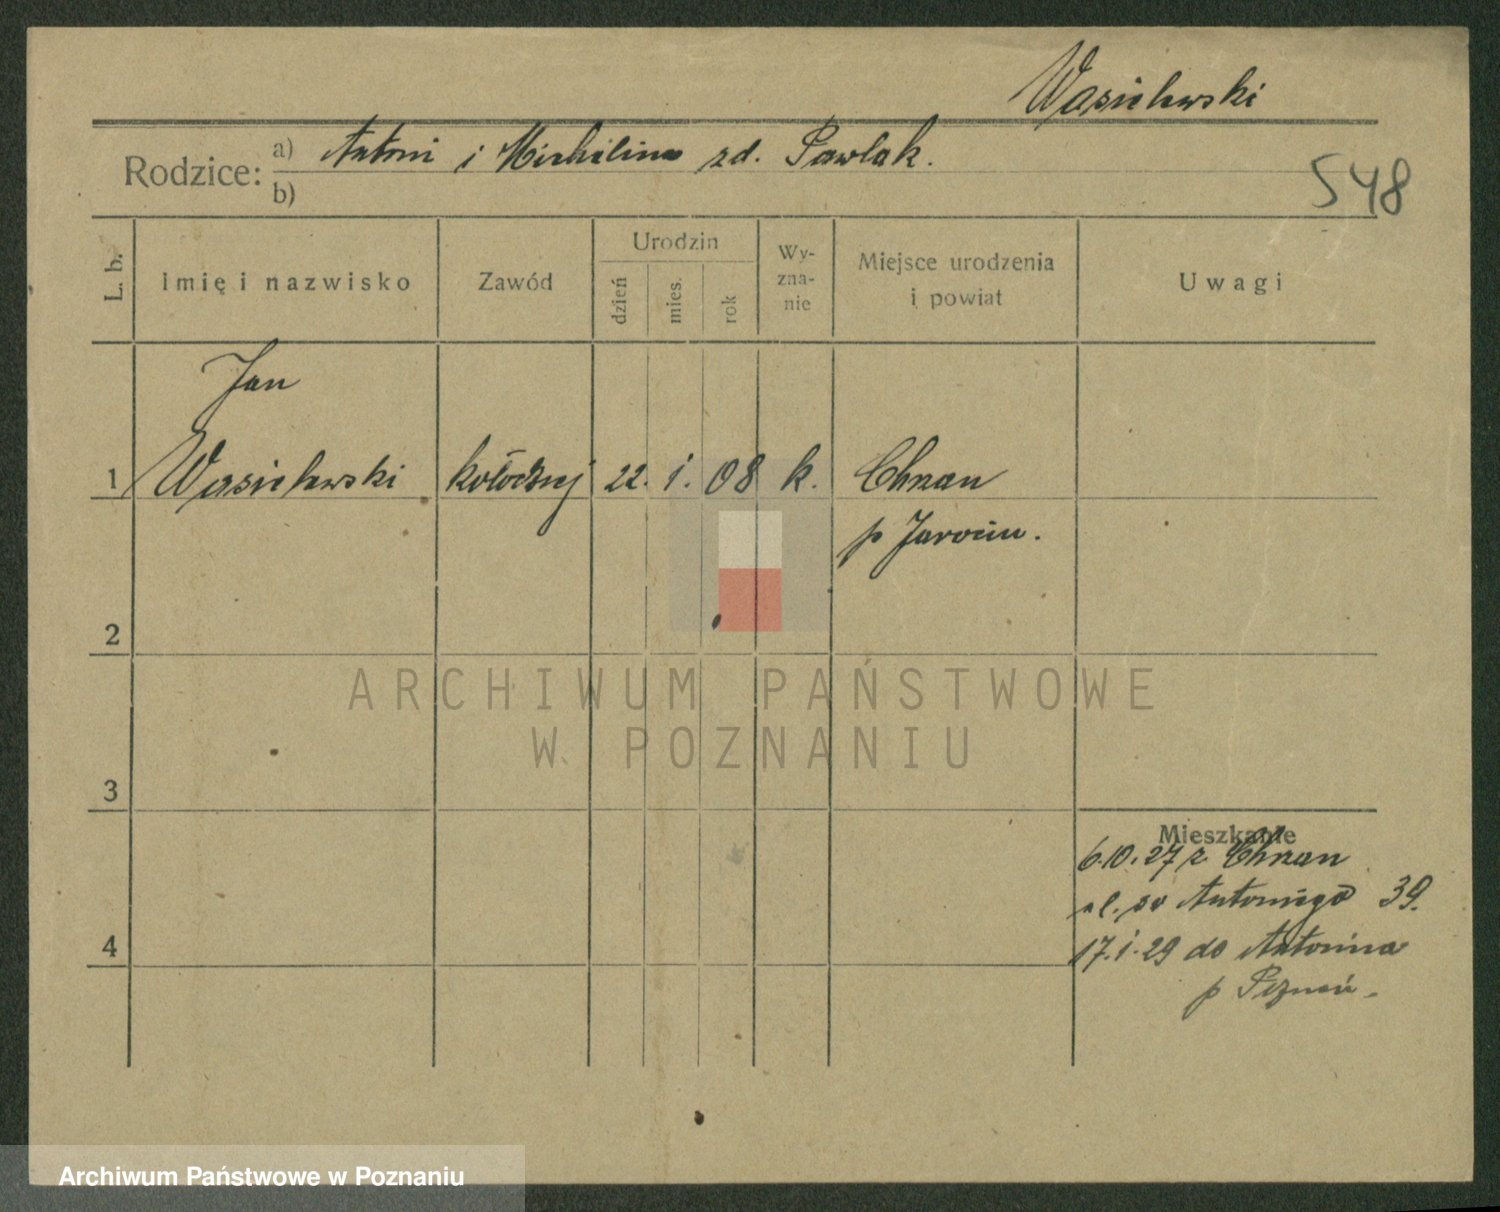 Wasielewski
Rodzice: a) Antoni i Michalina zd. Pawlak.
b)
548
L. b.
Imię i nazwisko
Zawód
Urodzin
dzień
mies.
rok
Wy-
zna-
nie
Miejsce urodzenia
i powiat
Uwagi
Jan
1 Wasielewski kołodziej 22. 1. 08 k. Chrzan
p Jarocin.
2
ARCHIWUM PAŃSTWOWE
W POZNANIU
3
Mieszkanie
6.10.27 z Chrzan
ul. św Antoniego 39.
4
17.1.29 do Antonina
p Poznań.
Archiwum Państwowe w Poznaniu